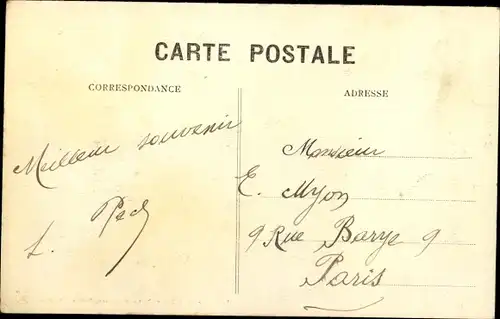 CARTE POSTALE
CORRESPONDANCE
ADRESSE
Meilleur souvenir
L.
Monsieur
E. Myon
9 Rue Barye 9
Paris